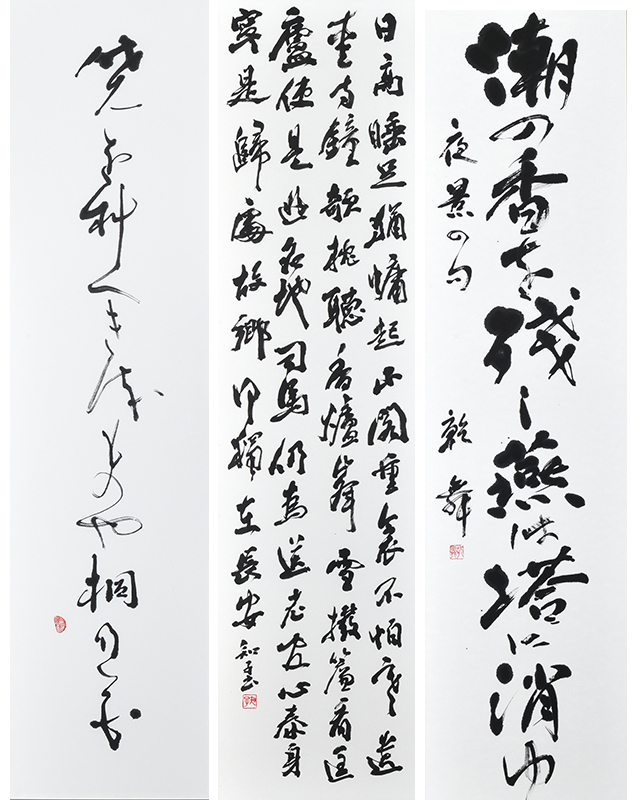 潮の香を残し燕は塔に消ゆ
夜景の句
乾舞
日高睡足猶慵起小閣重衾不怕寒遺
愛寺鐘欹枕聽香爐峯雪撥簾看匡
廬便是逃名地司馬仍為送老官心泰身
寧是歸處故鄉何獨在長安
ものや桐の花